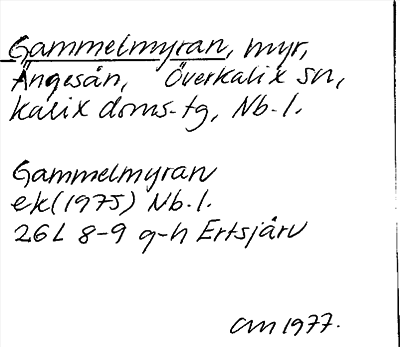 Gammelmyran, myr,
Ängesån, Överkalix sn,
Kalix doms-tg, Nb.l.
Gammelmyran
ek(1975) Nb.l.
26L 8-9 g-h Ertsjärv
CM 1977.